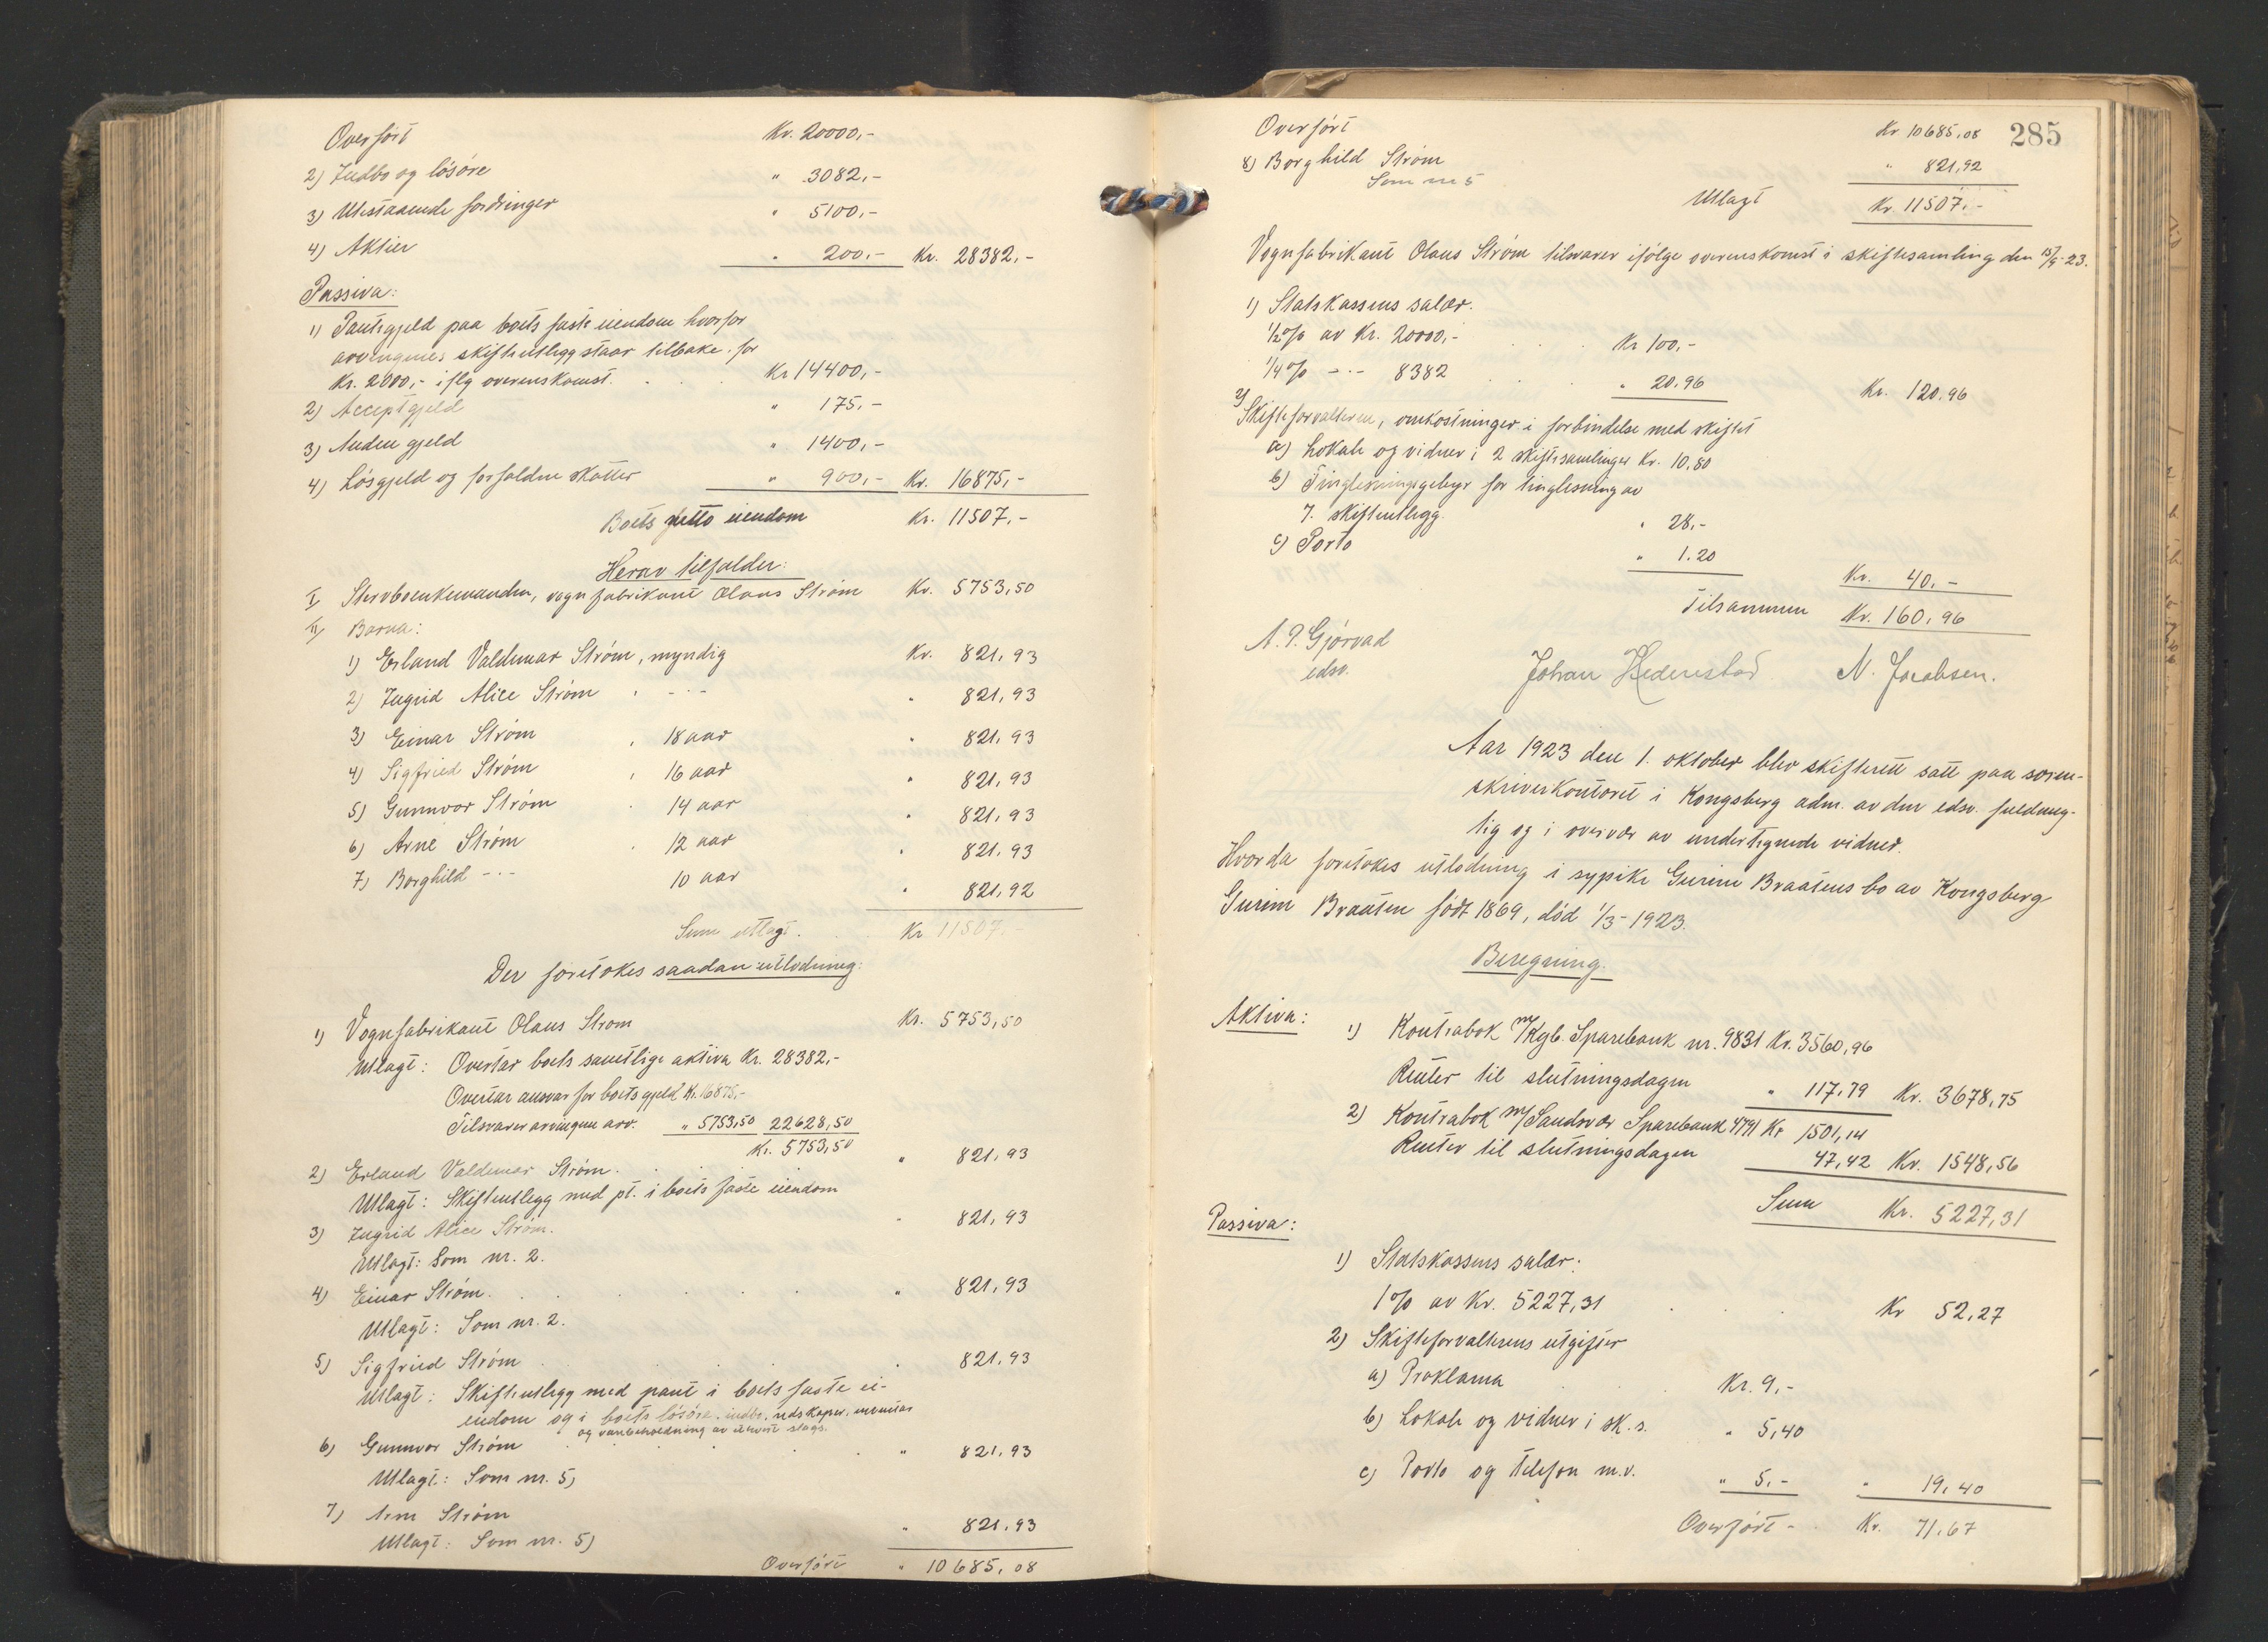 Overført Kr. 20000,-
2) Indbo og løsøre " 3082,-
3) Utestaaende fordringer " 5100,-
4) Aktier " 200,- Kr. 28382,-
Passiva:
1) Pantegjeld paa boets faste eiendom hvorfor
arvingenes skifteutlegg staar tilbake for
Kr. 2000,- iflg overenskomst. Kr 14400,-
2) Acceptgjeld " 175,-
3) Anden gjeld " 1400,-
4) Løsgjeld og forfaldne skatter " 900,- Kr. 16875,-
Boets netto eiendom Kr. 11507.-
Herav tilfalder:
I, Stervboenkemanden, vognfabrikant Olaus Strøm Kr. 5753,50
II, Barna:
1) Erland Valdemar Strøm, myndig Kr. 821,93
2) Ingrid Alice Strøm , -"- " 821,93
3) Einar Strøm , 18 aar " 821,93
4) Sigfried Strøm , 16 aar " 821,93
5) Gunnvor Strøm . 14 aar " 821,93
6) Arne Strøm . 12 aar " 821,93
7) Borghild -"- 10 aar " 821,92
Sum utlagt. Kr 11507.-
Der foretokes saadan utlodning:
1) Vognfabrikant Olaus Strøm Kr. 5753,50
Utlagt: Overtar boets samtlige aktiva Kr. 28382,-
Overtar ansvar for boets gjeld Kr. 16875,-
Tilsvarer arvingene arv. " 5753,50 22628,50
Kr. 5753,50
2) Erland Valdemar Strøm. " 821,93
Utlagt: Skifteutlegg med pt. i boets faste eiendom
3) Ingrid Alice Strøm. " 821,93
Utlagt: Som nr. 2.
4) Einar Strøm. " 821,93
Utlagt: Som nr. 2.
5) Sigfried Strøm " 821,93
Utlagt: Skifteutlegg med pant i boets faste ei-
endom og i boets løsøre, indbo, redskaper, inventar
og varebeholdning av ethvert slags.
6) Gunnvor Strøm " 821,93
Utlagt: Som nr. 5)
7) Arne Strøm " 821,93
Utlagt: Som nr. 5)
Overført " 10685,08
285
Overført Kr 10685,08
8) Borghild Strøm " 821,92
Som nr 5
Utlagt Kr. 11507.-
Vognfabrikant Olaus Strøm tilsvarer ifølge overenskomst i skiftesamling den 15/9-23.
1) Statskassens salær.
1/2 % av Kr. 20000,- Kr 100,-
1/4 % -"- 8382 " 20.96 Kr. 120.96
2) Skifteforvalteren, omkostninger i forbindelse med skiftet
a) Lokale og vidner i 2 skiftesamlinger Kr. 10,80
b) Tinglesningsgebyr for tinglesning av
7. skifteutlegg. " 28,-
c) Porto " 1.20
Kr. 40,-
Tilsammen Kr. 160,96
A. P. Gjørvad
edsv.
Johan Hedenstad N. Jacobsen.
Aar 1923 den 1. oktober blev skifterett satt paa soren-
skriverkontoret i Kongsberg adm. av den edsv. fuldmeg-
tig og i overvær av undertegnede vidner.
Hvorda foretokes utlodning i sypike Gurine Braatens bo av Kongsberg
Gurine Braaten født 1869, død 1/3-1923.
Beregning.
Aktiva:
1) Kontrabok m/Kgb. Sparebank nr. 9831 Kr. 3560,96
Renter til slutningsdagen " 117,79 Kr. 3678,75
2) Kontrabok m/Sandsvær Sparebank 4791 Kr 1501,14
Renter til slutningsdagen 47,42 Kr. 1548,56
Sum Kr. 5227,31
Passiva:
1) Statskassens salær:
1 % av Kr. 5227,31 Kr 52,27
2) Skifteforvalterens utgifter
a) Proklama Kr. 9,-
b) Lokale og vidner i sk. s. " 5,40
c) Porto og telefon m.v. " 5,- " 19,40
Overført - Kr. 71,67